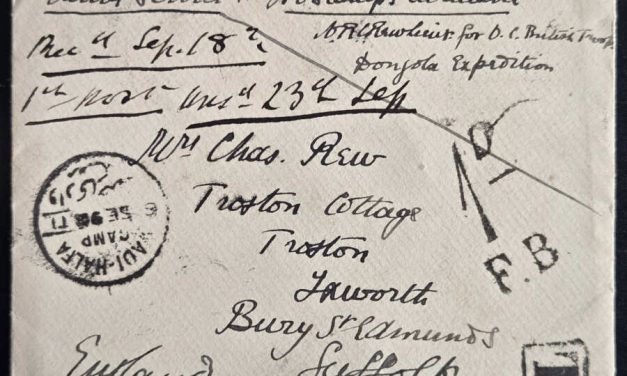 Active Service - No Stamps available
for O.C. British Troops
Dongola Expedition
Recd Sep. 18th
1st post ansd 23rd Sep
Mrs Chas. Rew
Troston Cottage
Troston
Ixworth
Bury St Edmunds
England Suffolk
WADI-HALFA
CAMP
SE 96
F.B